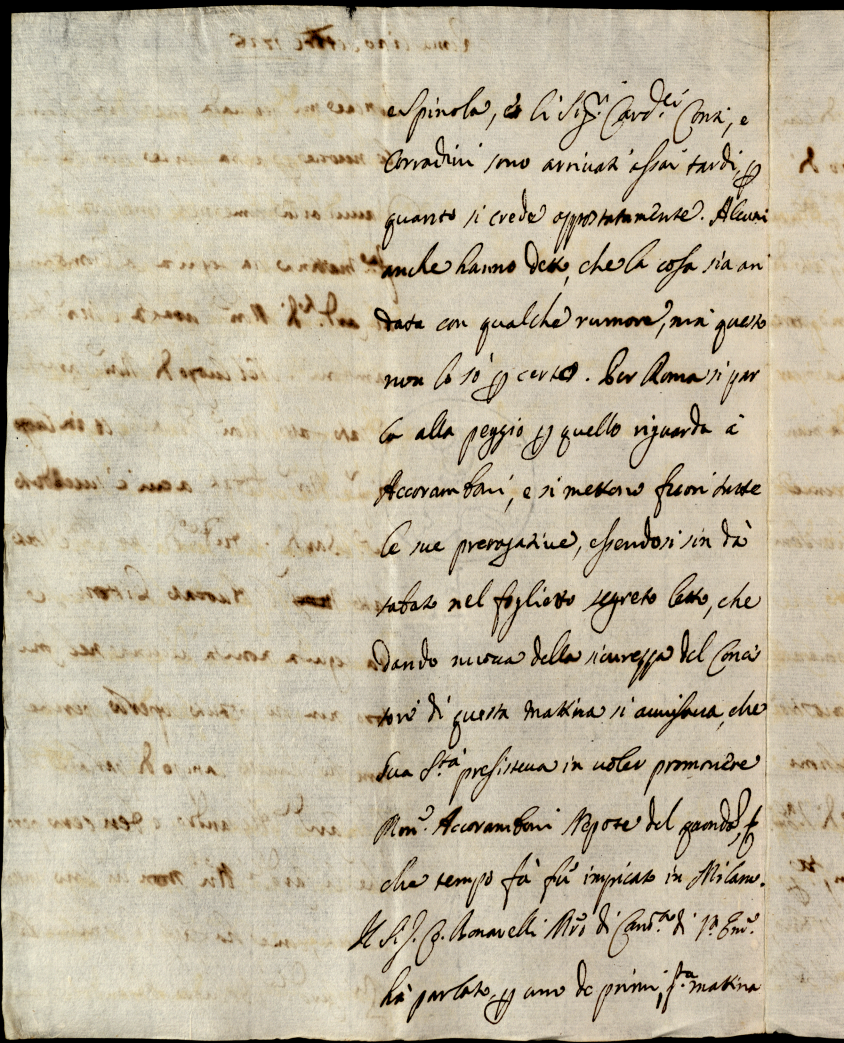 e Spinola, e li Sig.ri Card.li Conti, e
Corradini sono arrivati assai tardi, p
quanto si crede appostatamente. Alcuni
anche hanno detto, che la cosa sia an
data con qualche rumore, mà questo
non lo sò p certo. Per Roma si par
la alla peggio p quello riguarda à
Accoramboni, e si mettono fuori tutte
le sue prerogative, essendosi sin dà
sabato nel foglietto segreto letto, che
dando nuova della sicurezza del Conci
storo di questa mattina si avvisava, che
Sua S.tà presisteva in voler promovere
Mon.r Accoramboni Nepote del quondã
che tempo fà fù impicato in Milano.
Il Sig. Bonavelli Mro di Cam.ra di V. Em.
hà parlato, p uno de primi, s.ta mattina